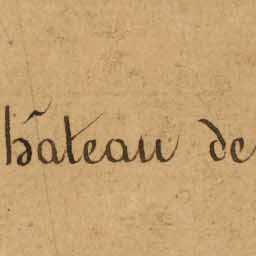 hâteau de